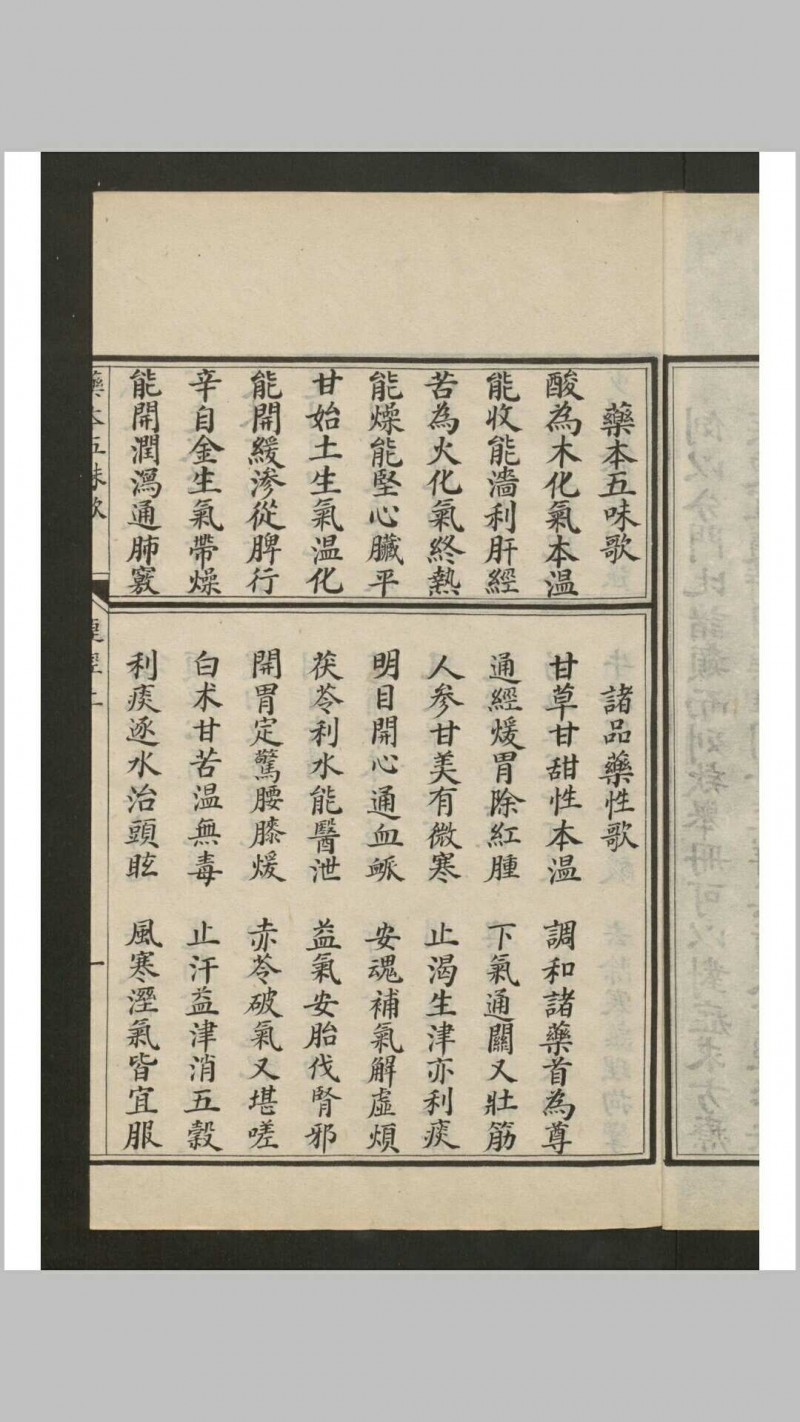 藥本五味歌
酸為木化氣本溫
能收能濇利肝經
苦為火化氣終熱
能燥能堅心臟平
甘始土生氣温化
能開緩滲從脾行
辛自金生氣帶燥
能開潤瀉通肺竅
諸品藥性歌
甘草甘甜性本温 調和諸藥首為尊
通經煖胃除紅腫 下氣通關又壯筋
人參甘美有微寒 止渴生津亦利痰
明目開心通血脈 安魂補氣解虛煩
茯苓利水能醫泄 益氣安胎伐腎邪
開胃定驚腰膝煖 赤苓破氣又堪嗟
白朮甘苦温無毒 止汗益津消五穀
利痰逐水治頭眩 風寒溼氣皆宜服
藥本五味歌
一